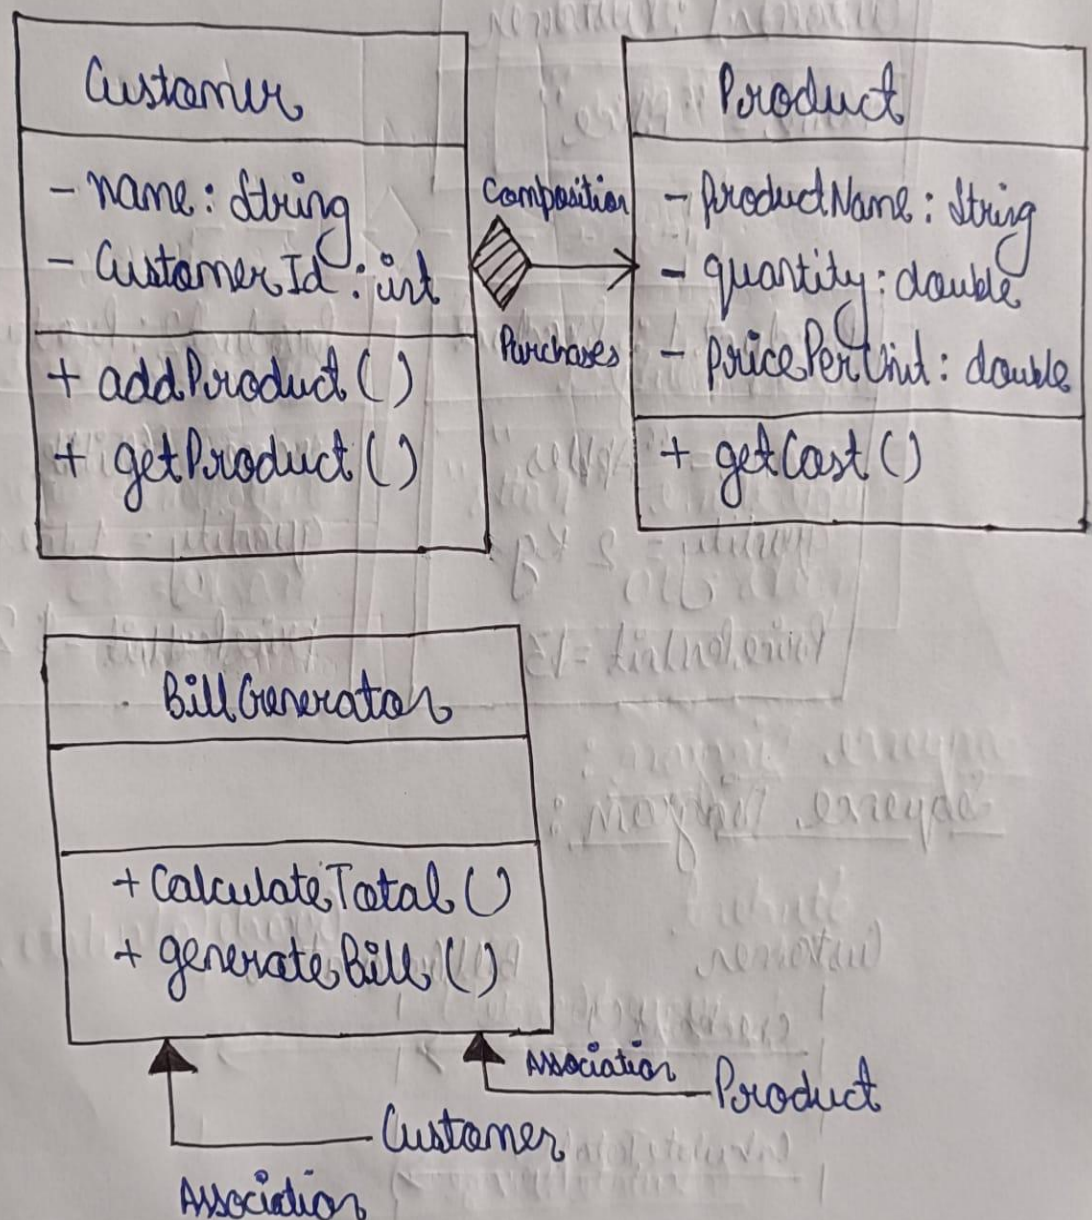 Customer
- name : String
- CustomerId : int
+ addProduct ()
+ getProduct ()
Composition
Purchases
Product
- ProductName : String
- quantity : double
- pricePerUnit : double
+ getCost ()
BillGenerator
+ CalculateTotal ()
+ generateBill ()
Association
Product
Customer
Association